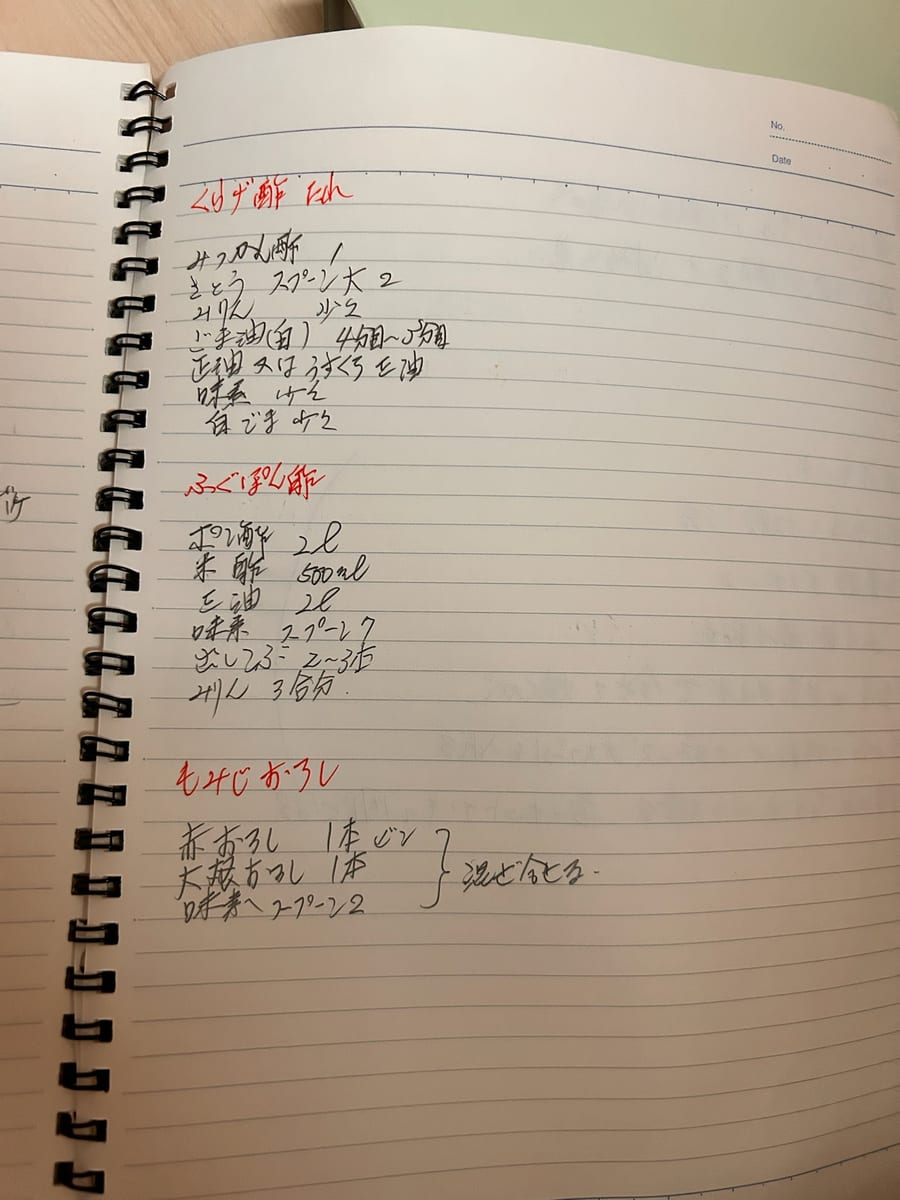 No.
Date
くらげ酢 たれ
みつかん酢 1
さとう スプーン大 2
みりん 少々
ごま油(白) 4分目~5分目
正油 又は うすくち 正油
味素 少々
白ごま 少々
ふぐぽん酢
ポン酢 2ℓ
米酢 500ml
正油 2ℓ
味素 スプーン7
出しこぶ 2~3
みりん 3合分.
もみじおろし
赤おろし 1本 ビン
大根おろし 1本
味素 スプーン2
混ど合とる.